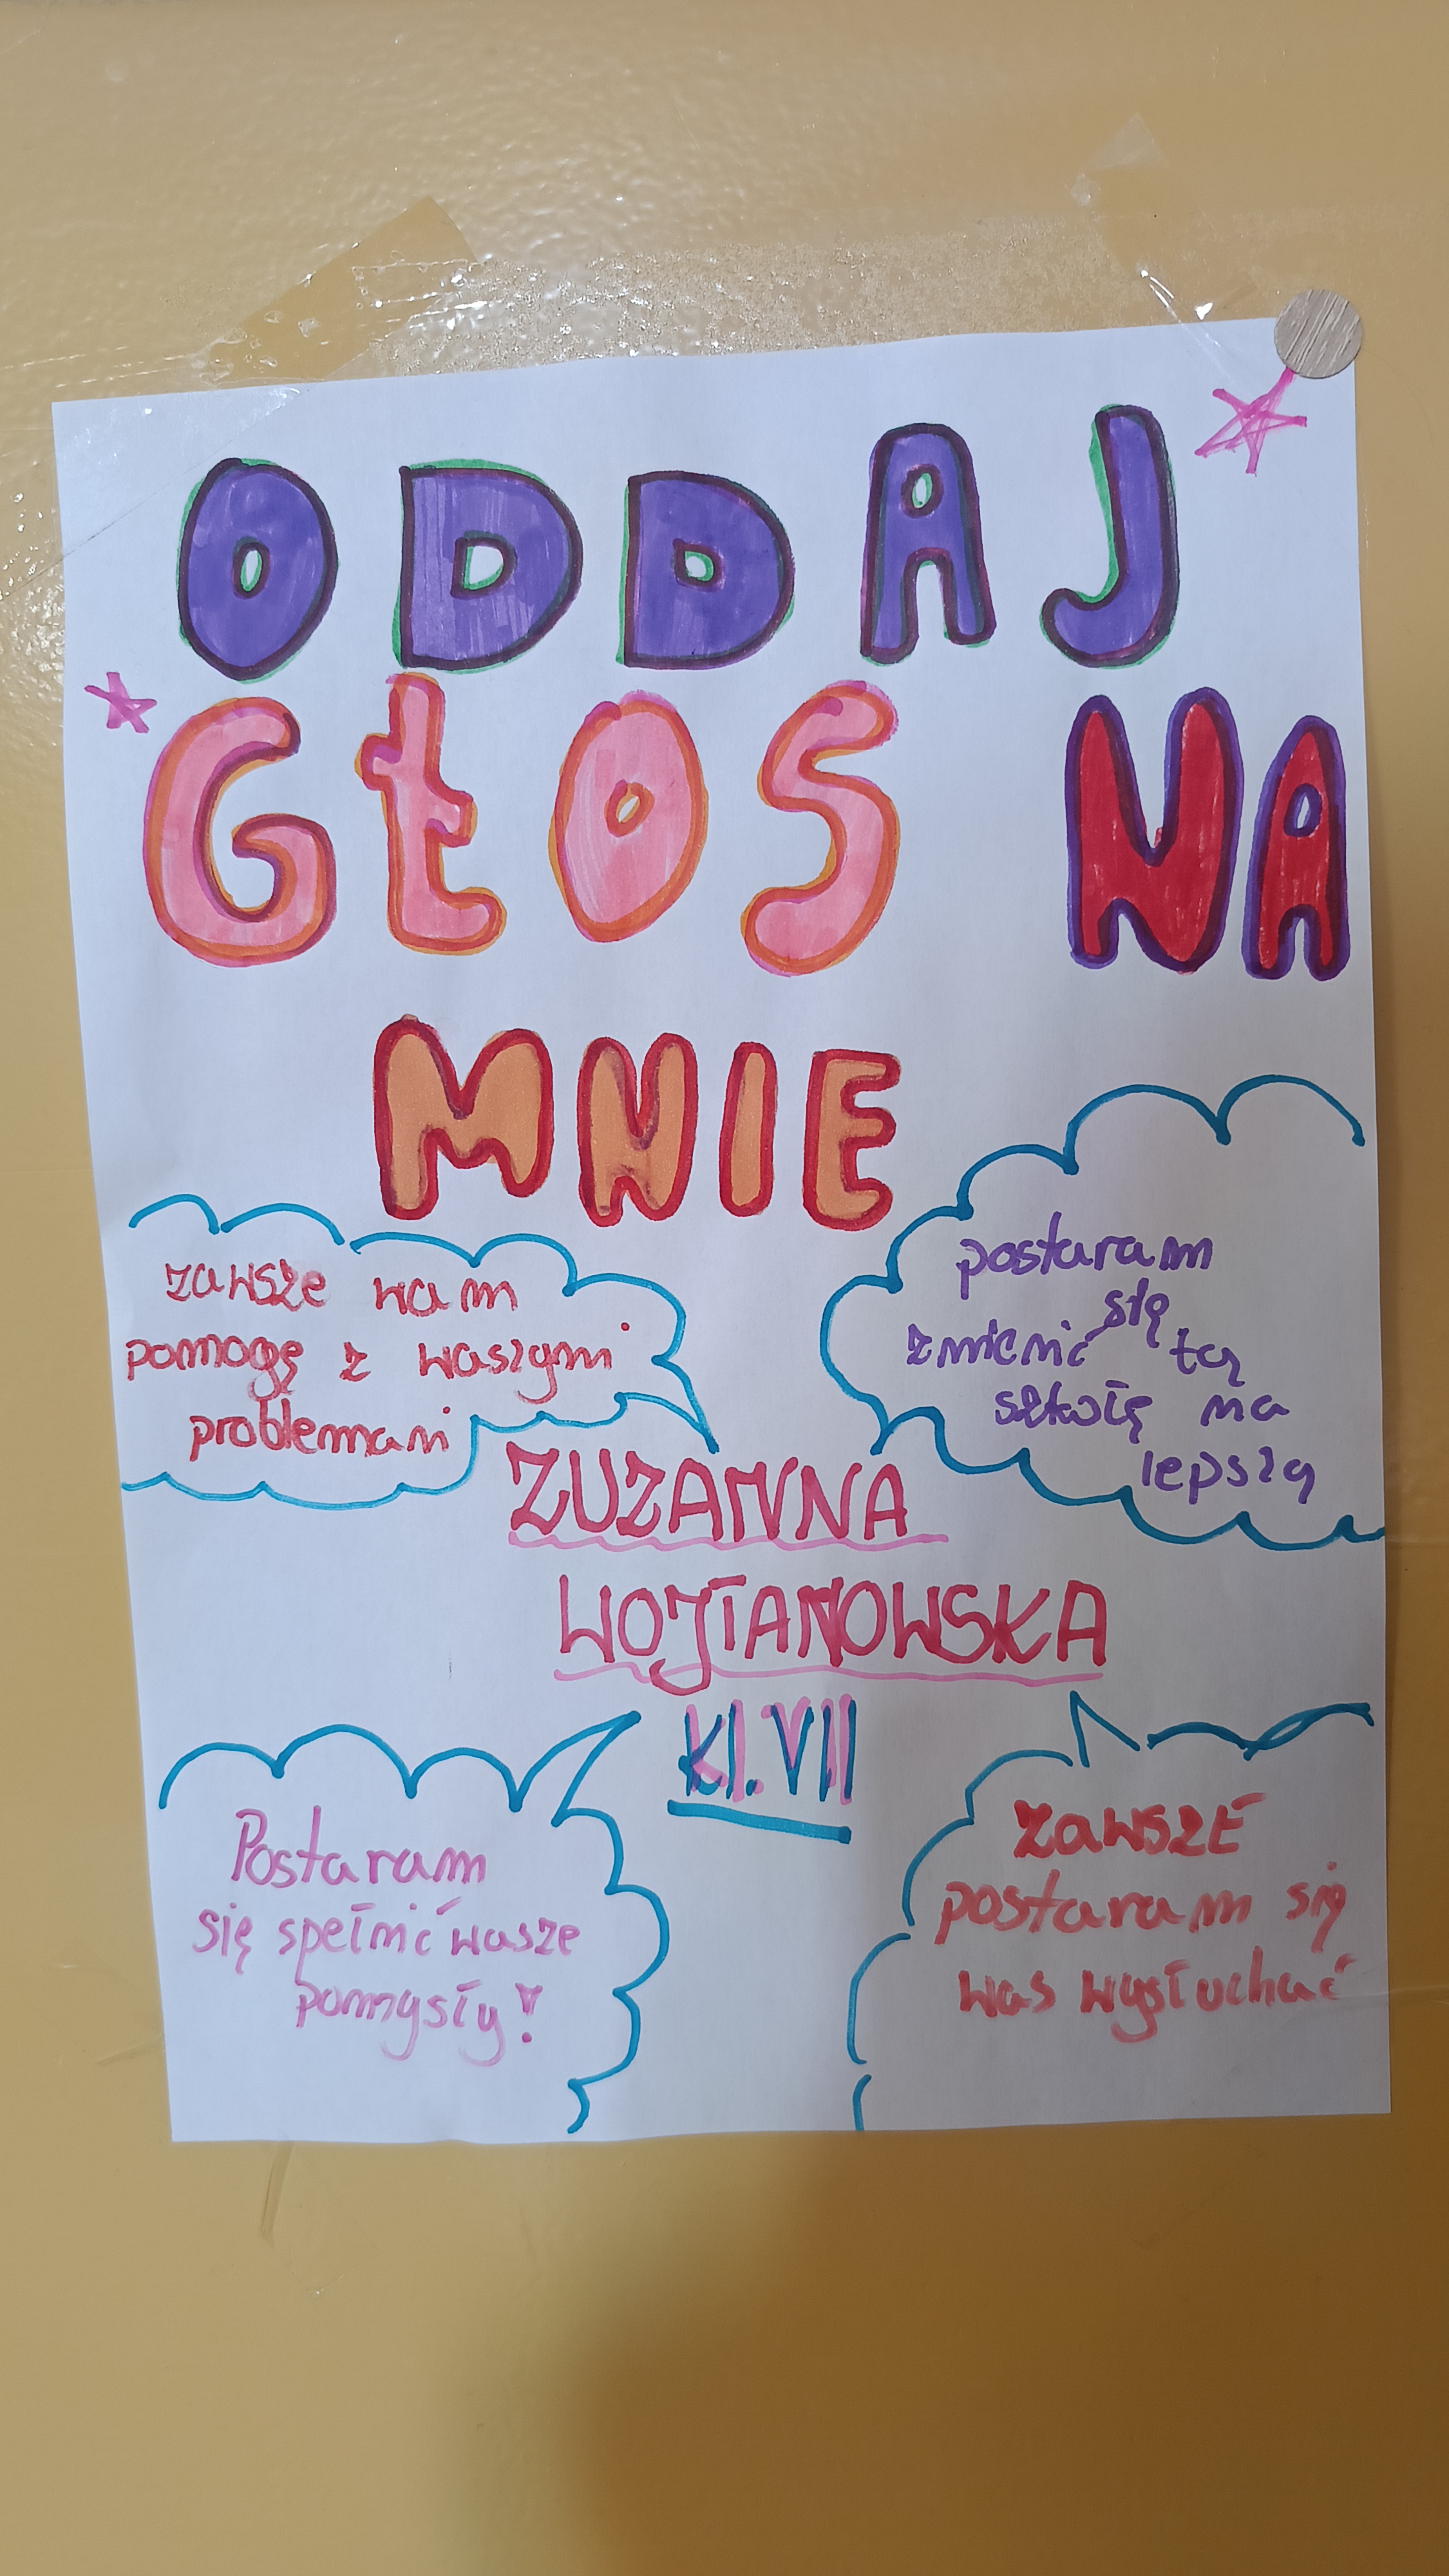 ODDAJ
GŁOS NA
MNIE
zawsze wam
pomogę z waszymi
problemami
postaram
się
zmienić tą
szkołę na
lepszą
ZUZANNA
WOJTANOWSKA
Kl. VII
Postaram
się spełnić wasze
pomysły!
ZAWSZE
postaram się
was wysłuchać